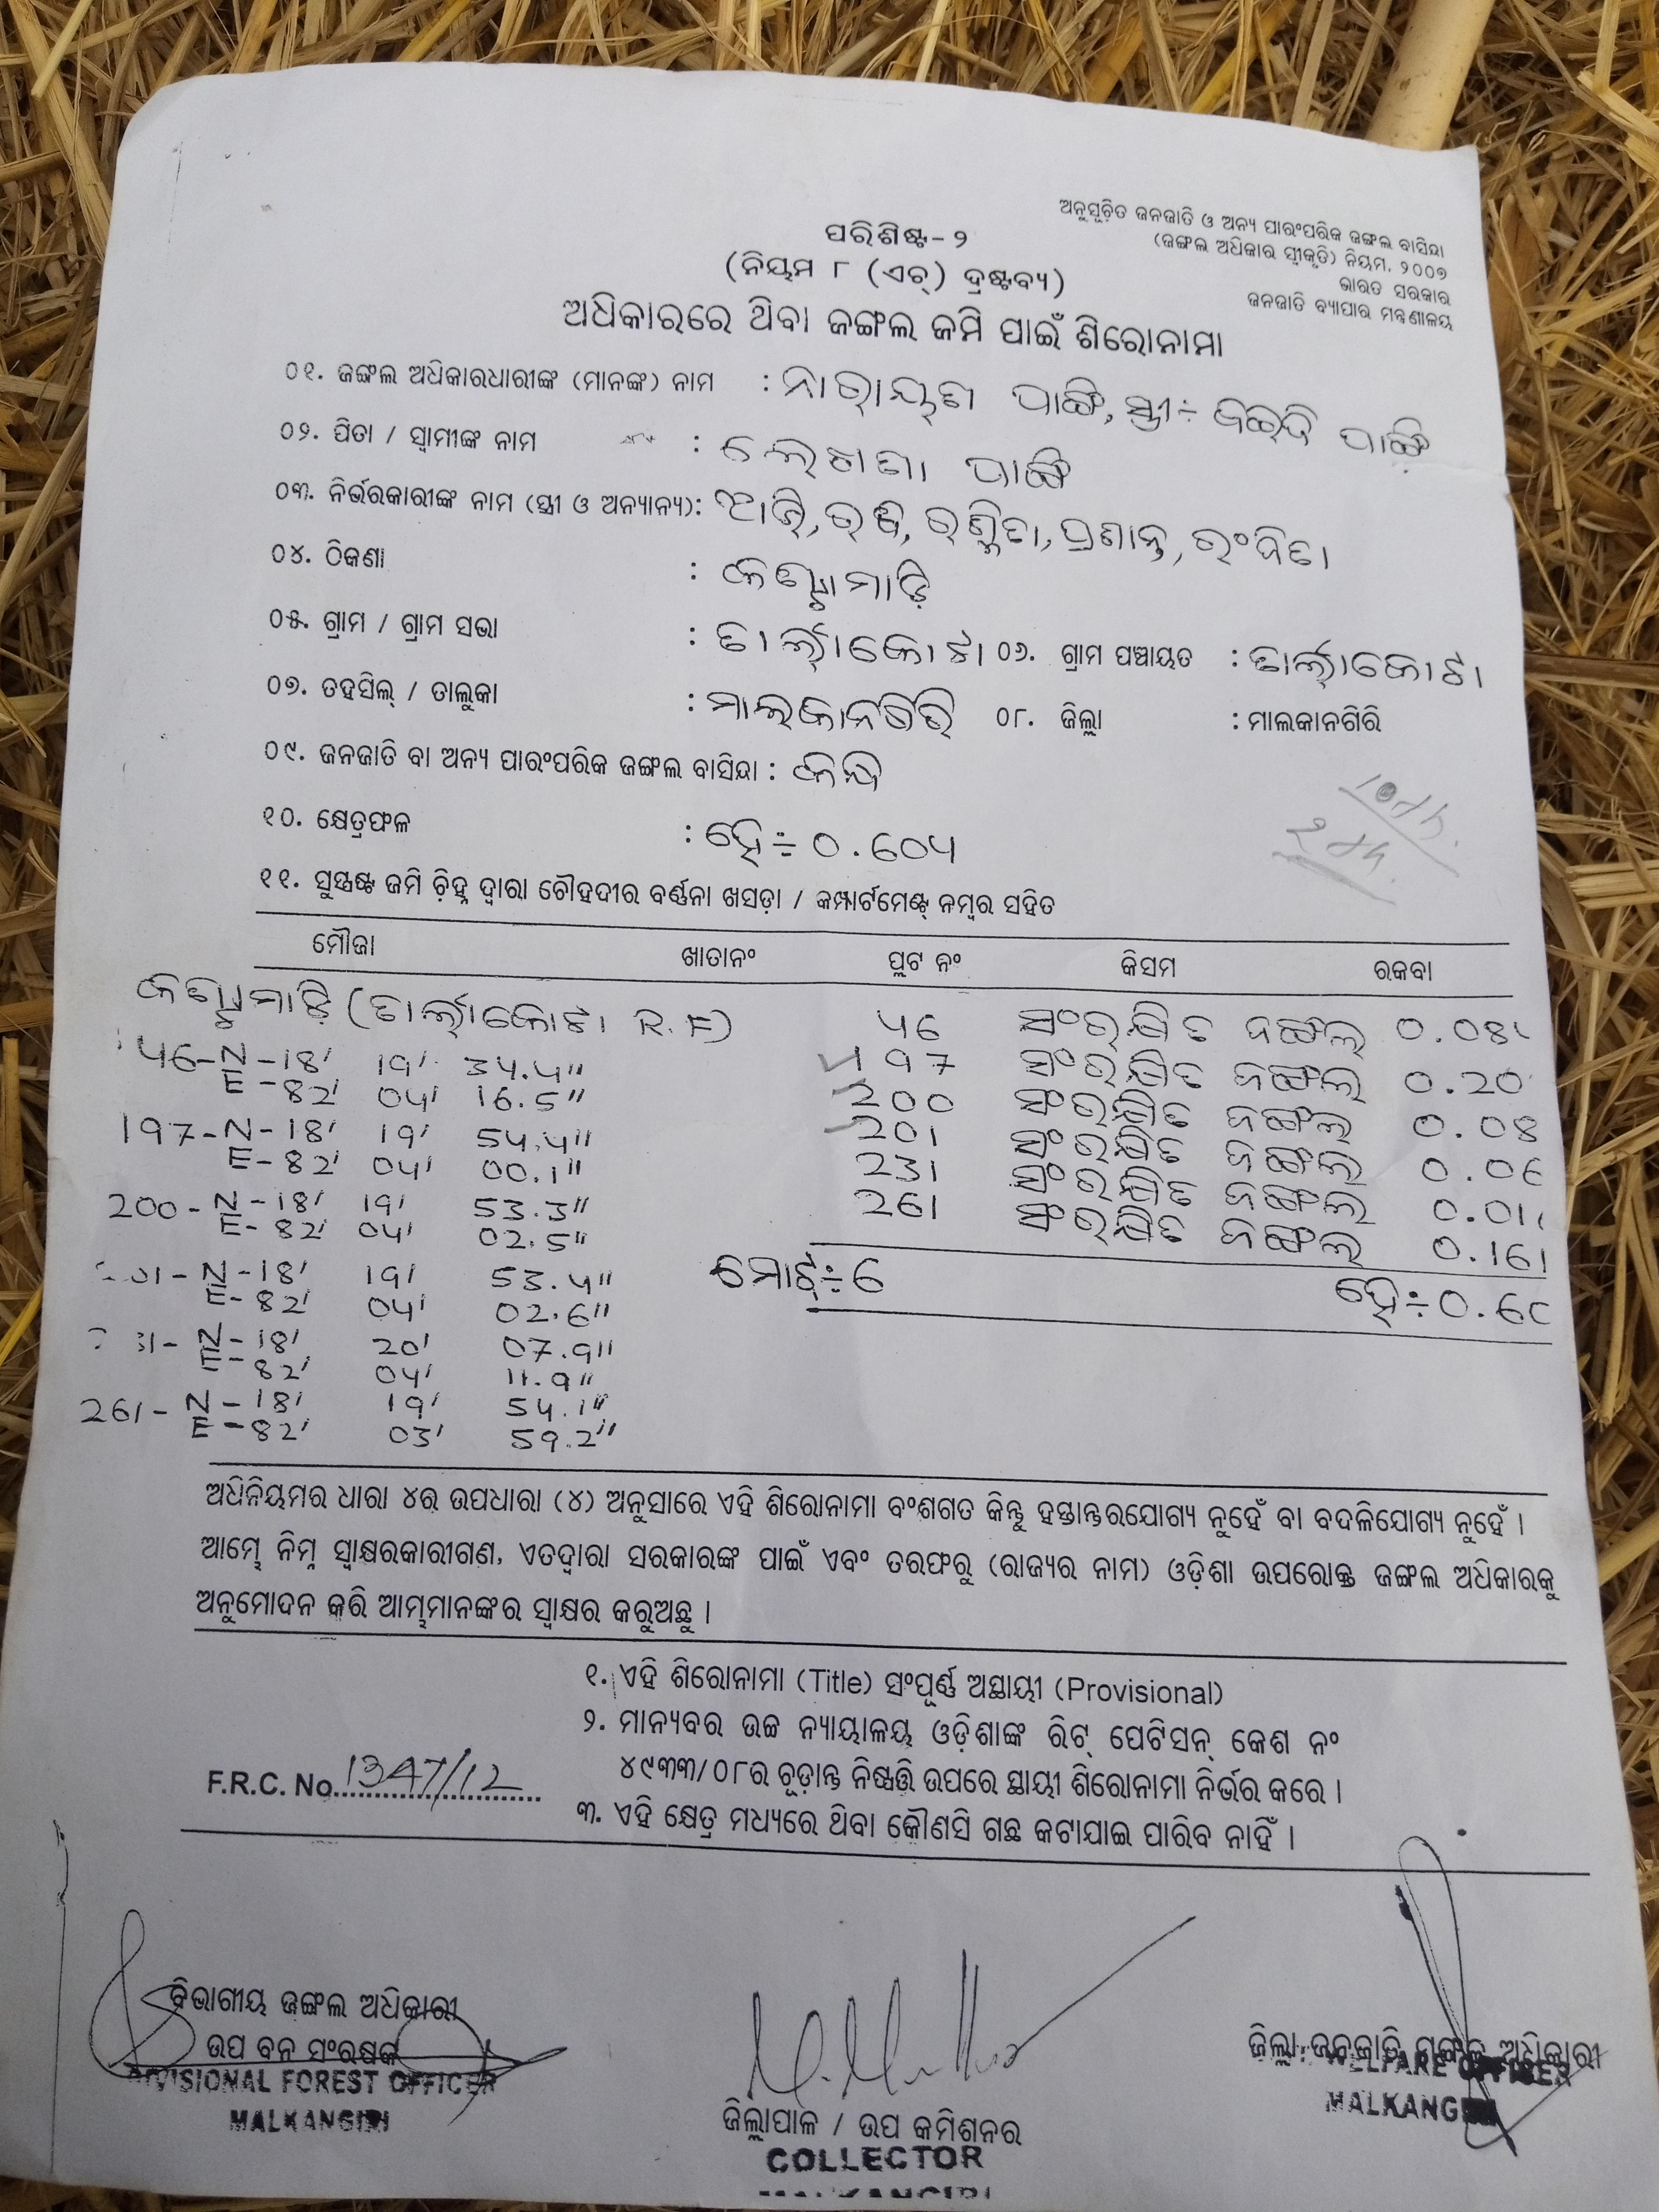 ଅନୁସୂଚିତ ଜନଜାତି ଓ ଅନ୍ୟ ପାରଂପରିକ ଜଙ୍ଗଲ ବାସିନ୍ଦା
(ଜଙ୍ଗଲ ଅଧିକାର ସ୍ୱୀକୃତି) ନିୟମ, ୨୦୦୭
ଭାରତ ସରକାର
ଜନଜାତି ବ୍ୟାପାର ମନ୍ତ୍ରଣାଳୟ
ପରିଶିଷ୍ଟ-୨
(ନିୟମ ୮ (ଏଚ୍) ଦ୍ରଷ୍ଟବ୍ୟ)
ଅଧିକାରରେ ଥିବା ଜଙ୍ଗଲ ଜମି ପାଇଁ ଶିରୋନାମା
୦୧. ଜଙ୍ଗଲ ଅଧିକାରଧାରୀଙ୍କ (ମାନଙ୍କ) ନାମ : ନାରାୟଣ ପାଙ୍ଗି, ସ୍ତ୍ରୀ÷ ପାଙ୍ଗି
୦୨. ପିତା / ସ୍ୱାମୀଙ୍କ ନାମ : ପାଙ୍ଗି
୦୩. ନିର୍ଭରକାରୀଙ୍କ ନାମ (ସ୍ତ୍ରୀ ଓ ଅନ୍ୟାନ୍ୟ):
୦୪. ଠିକଣା :
୦୫. ଗ୍ରାମ / ଗ୍ରାମ ସଭା : ତାର୍ଲାକୋଟା ୦୬. ଗ୍ରାମ ପଞ୍ଚାୟତ : ତାର୍ଲାକୋଟା
୦୭. ତହସିଲ୍ / ତାଲୁକା : ମାଲକାନଗିରି ୦୮. ଜିଲ୍ଲା : ମାଲକାନଗିରି
୦୯. ଜନଜାତି ବା ଅନ୍ୟ ପାରଂପରିକ ଜଙ୍ଗଲ ବାସିନ୍ଦା : କନ୍ଧ
୧୦. କ୍ଷେତ୍ରଫଳ : ହେ÷ ୦.୬୦୪
୧୧. ସୁସ୍ପଷ୍ଟ ଜମି ଚିହ୍ନ ଦ୍ୱାରା ଚୌହଦୀର ବର୍ଣ୍ଣନା ଖସଡ଼ା / କମ୍ପାର୍ଟମେଣ୍ଟ୍ ନମ୍ବର ସହିତ
ମୌଜା ଖାତାନଂ ପ୍ଲଟ ନଂ କିସମ ରକବା
(ତାର୍ଲାକୋଟା R.F) 46 ସଂରକ୍ଷିତ ଜଙ୍ଗଲ
46-N-18' 19' 34.4" 197 ସଂରକ୍ଷିତ ଜଙ୍ଗଲ 0.20
E-82' 04' 16.5" 200 ସଂରକ୍ଷିତ ଜଙ୍ଗଲ 0.08
197-N-18' 19' 54.4" 201 ସଂରକ୍ଷିତ ଜଙ୍ଗଲ
E-82' 04' 00.1" 231 ସଂରକ୍ଷିତ ଜଙ୍ଗଲ
200-N-18' 19' 53.3" 261 ସଂରକ୍ଷିତ ଜଙ୍ଗଲ 0.161
E-82' 04' 02.5"
ମୋଟ୍÷ 6
N-18' 19' 53.4"
E-82' 04' 02.6"
N-18' 20' 07.9"
E-82' 04' 11.9"
261-N-18' 19' 54.1"
E-82' 03' 59.2"
ଅଧିନିୟମର ଧାରା ୪ର ଉପଧାରା (୪) ଅନୁସାରେ ଏହି ଶିରୋନାମା ବଂଶଗତ କିନ୍ତୁ ହସ୍ତାନ୍ତରଯୋଗ୍ୟ ନୁହେଁ ବା ବଦଳିଯୋଗ୍ୟ ନୁହେଁ ।
ଆମ୍ଭେ ନିମ୍ନ ସ୍ୱାକ୍ଷରକାରୀଗଣ, ଏତଦ୍ୱାରା ସରକାରଙ୍କ ପାଇଁ ଏବଂ ତରଫରୁ (ରାଜ୍ୟର ନାମ) ଓଡ଼ିଶା ଉପରୋକ୍ତ ଜଙ୍ଗଲ ଅଧିକାରକୁ
ଅନୁମୋଦନ କରି ଆମ୍ଭମାନଙ୍କର ସ୍ୱାକ୍ଷର କରୁଅଛୁ ।
୧. ଏହି ଶିରୋନାମା (Title) ସଂପୂର୍ଣ୍ଣ ଅସ୍ଥାୟୀ (Provisional)
୨. ମାନ୍ୟବର ଉଚ୍ଚ ନ୍ୟାୟାଳୟ ଓଡ଼ିଶାଙ୍କ ରିଟ୍ ପେଟିସନ୍ କେଶ ନଂ
୪୯୩୩/୦୮ର ଚୂଡ଼ାନ୍ତ ନିଷ୍ପତ୍ତି ଉପରେ ସ୍ଥାୟୀ ଶିରୋନାମା ନିର୍ଭର କରେ ।
F.R.C. No. 1347/12
୩. ଏହି କ୍ଷେତ୍ର ମଧ୍ୟରେ ଥିବା କୌଣସି ଗଛ କଟାଯାଇ ପାରିବ ନାହିଁ ।
ବିଭାଗୀୟ ଜଙ୍ଗଲ ଅଧିକାରୀ
ଉପ ବନ ସଂରକ୍ଷକ
DIVISIONAL FOREST OFFICER
MALKANGIRI
ଜିଲ୍ଲାପାଳ / ଉପ କମିଶନର
COLLECTOR
MALKANGIRI
ଜିଲ୍ଲା ଜନଜାତି ମଙ୍ଗଳ ଅଧିକାରୀ
WELFARE OFFICER
MALKANGIRI